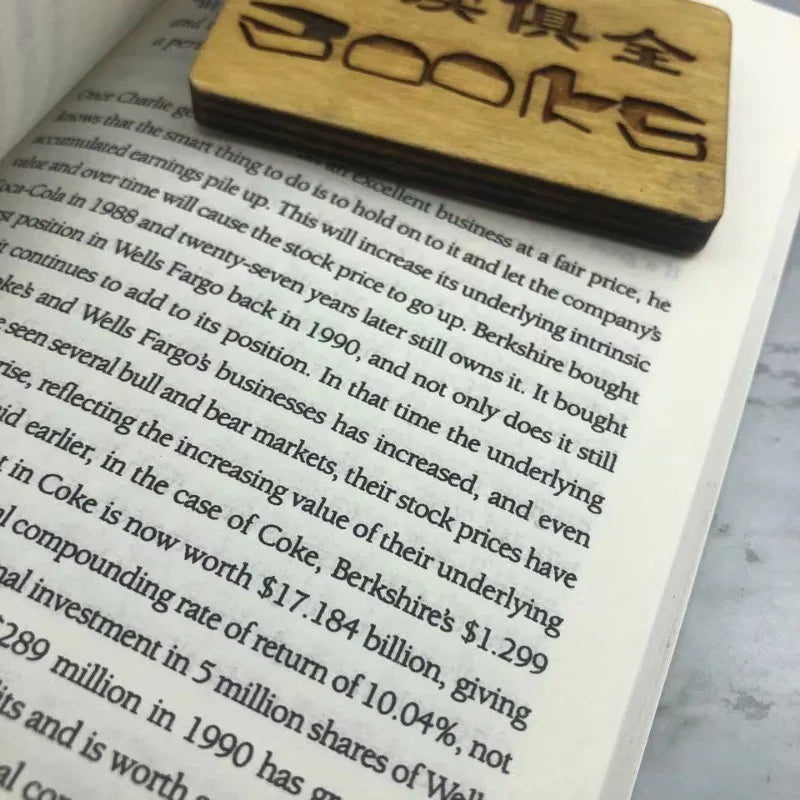 俱全
BOOKS
and
a per
Once Charlie ge
an excellent business at a fair price, he
knows that the smart thing to do is to hold on to it and let the company's
accumulated earnings pile up. This will increase its underlying intrinsic
value and over time will cause the stock price to go up. Berkshire bought
oca-Cola in 1988 and twenty-seven years later still owns it. It bought
st position in Wells Fargo back in 1990, and not only does it still
it continues to add to its position. In that time the underlying
oke's and Wells Fargo's businesses has increased, and even
e seen several bull and bear markets, their stock prices have
rise, reflecting the increasing value of their underlying
id earlier, in the case of Coke, Berkshire's $1.299
t in Coke is now worth $17.184 billion, giving
al compounding rate of return of 10.04%, not
nal investment in 5 million shares of Well
$289 million in 1990 has gr
its and is worth
al con